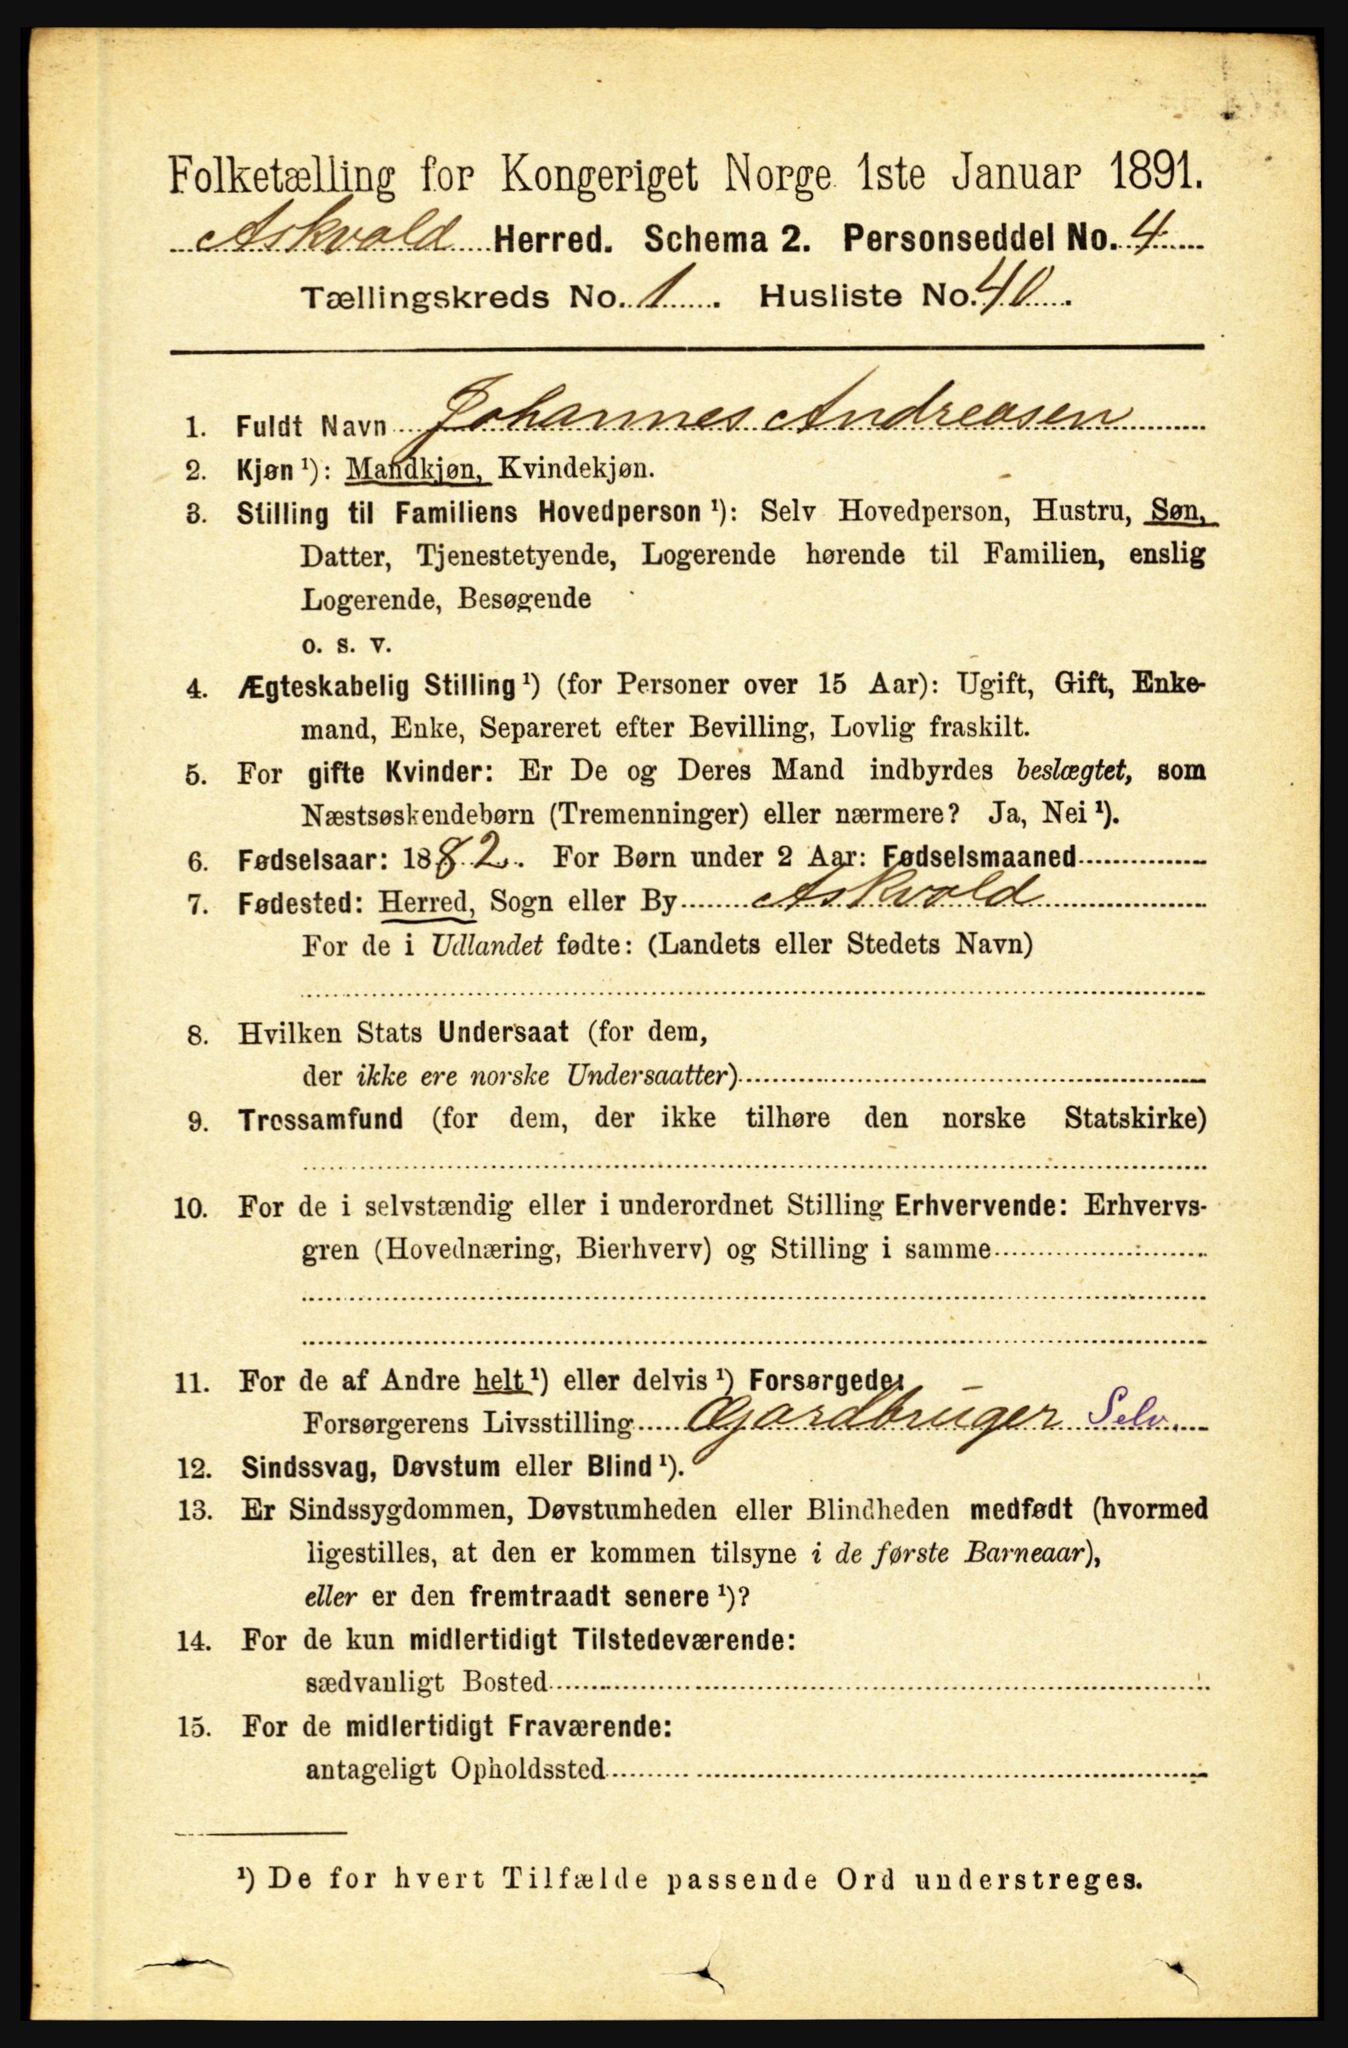 Folketælling for Kongeriget Norge 1ste Januar 1891.
Askvold Herred. Schema 2. Personseddel No. 4
Tællingskreds No. 1. Husliste No. 40.
1. Fuldt Navn Johannes Andreasen
2. Kjøn ¹): Mandkjøn, Kvindekjøn.
3. Stilling til Familiens Hovedperson ¹): Selv Hovedperson, Hustru, Søn,
Datter, Tjenestetyende, Logerende hørende til Familien, enslig
Logerende, Besøgende
o. s. v.
4. Ægteskabelig Stilling ¹) (for Personer over 15 Aar): Ugift, Gift, Enke-
mand, Enke, Separeret efter Bevilling, Lovlig fraskilt.
5. For gifte Kvinder: Er De og Deres Mand indbyrdes beslægtet, som
Næstsøskendebørn (Tremenninger) eller nærmere? Ja, Nei ¹).
6. Fødselsaar: 1882. For Børn under 2 Aar: Fødselsmaaned
7. Fødested: Herred, Sogn eller By Askvold
For de i Udlandet fødte: (Landets eller Stedets Navn)
8. Hvilken Stats Undersaat (for dem,
der ikke ere norske Undersaatter)
9. Trossamfund (for dem, der ikke tilhøre den norske Statskirke)
10. For de i selvstændig eller i underordnet Stilling Erhvervende: Erhvervs-
gren (Hovednæring, Bierhverv) og Stilling i samme
11. For de af Andre helt ¹) eller delvis ¹) Forsørgede:
Forsørgerens Livsstilling Gjardbruger Selv.
12. Sindssvag, Døvstum eller Blind ¹).
13. Er Sindssygdommen, Døvstumheden eller Blindheden medfødt (hvormed
ligestilles, at den er kommen tilsyne i de første Barneaar),
eller er den fremtraadt senere ¹)?
14. For de kun midlertidigt Tilstedeværende:
sædvanligt Bosted
15. For de midlertidigt Fraværende:
antageligt Opholdssted
¹) De for hvert Tilfælde passende Ord understreges.